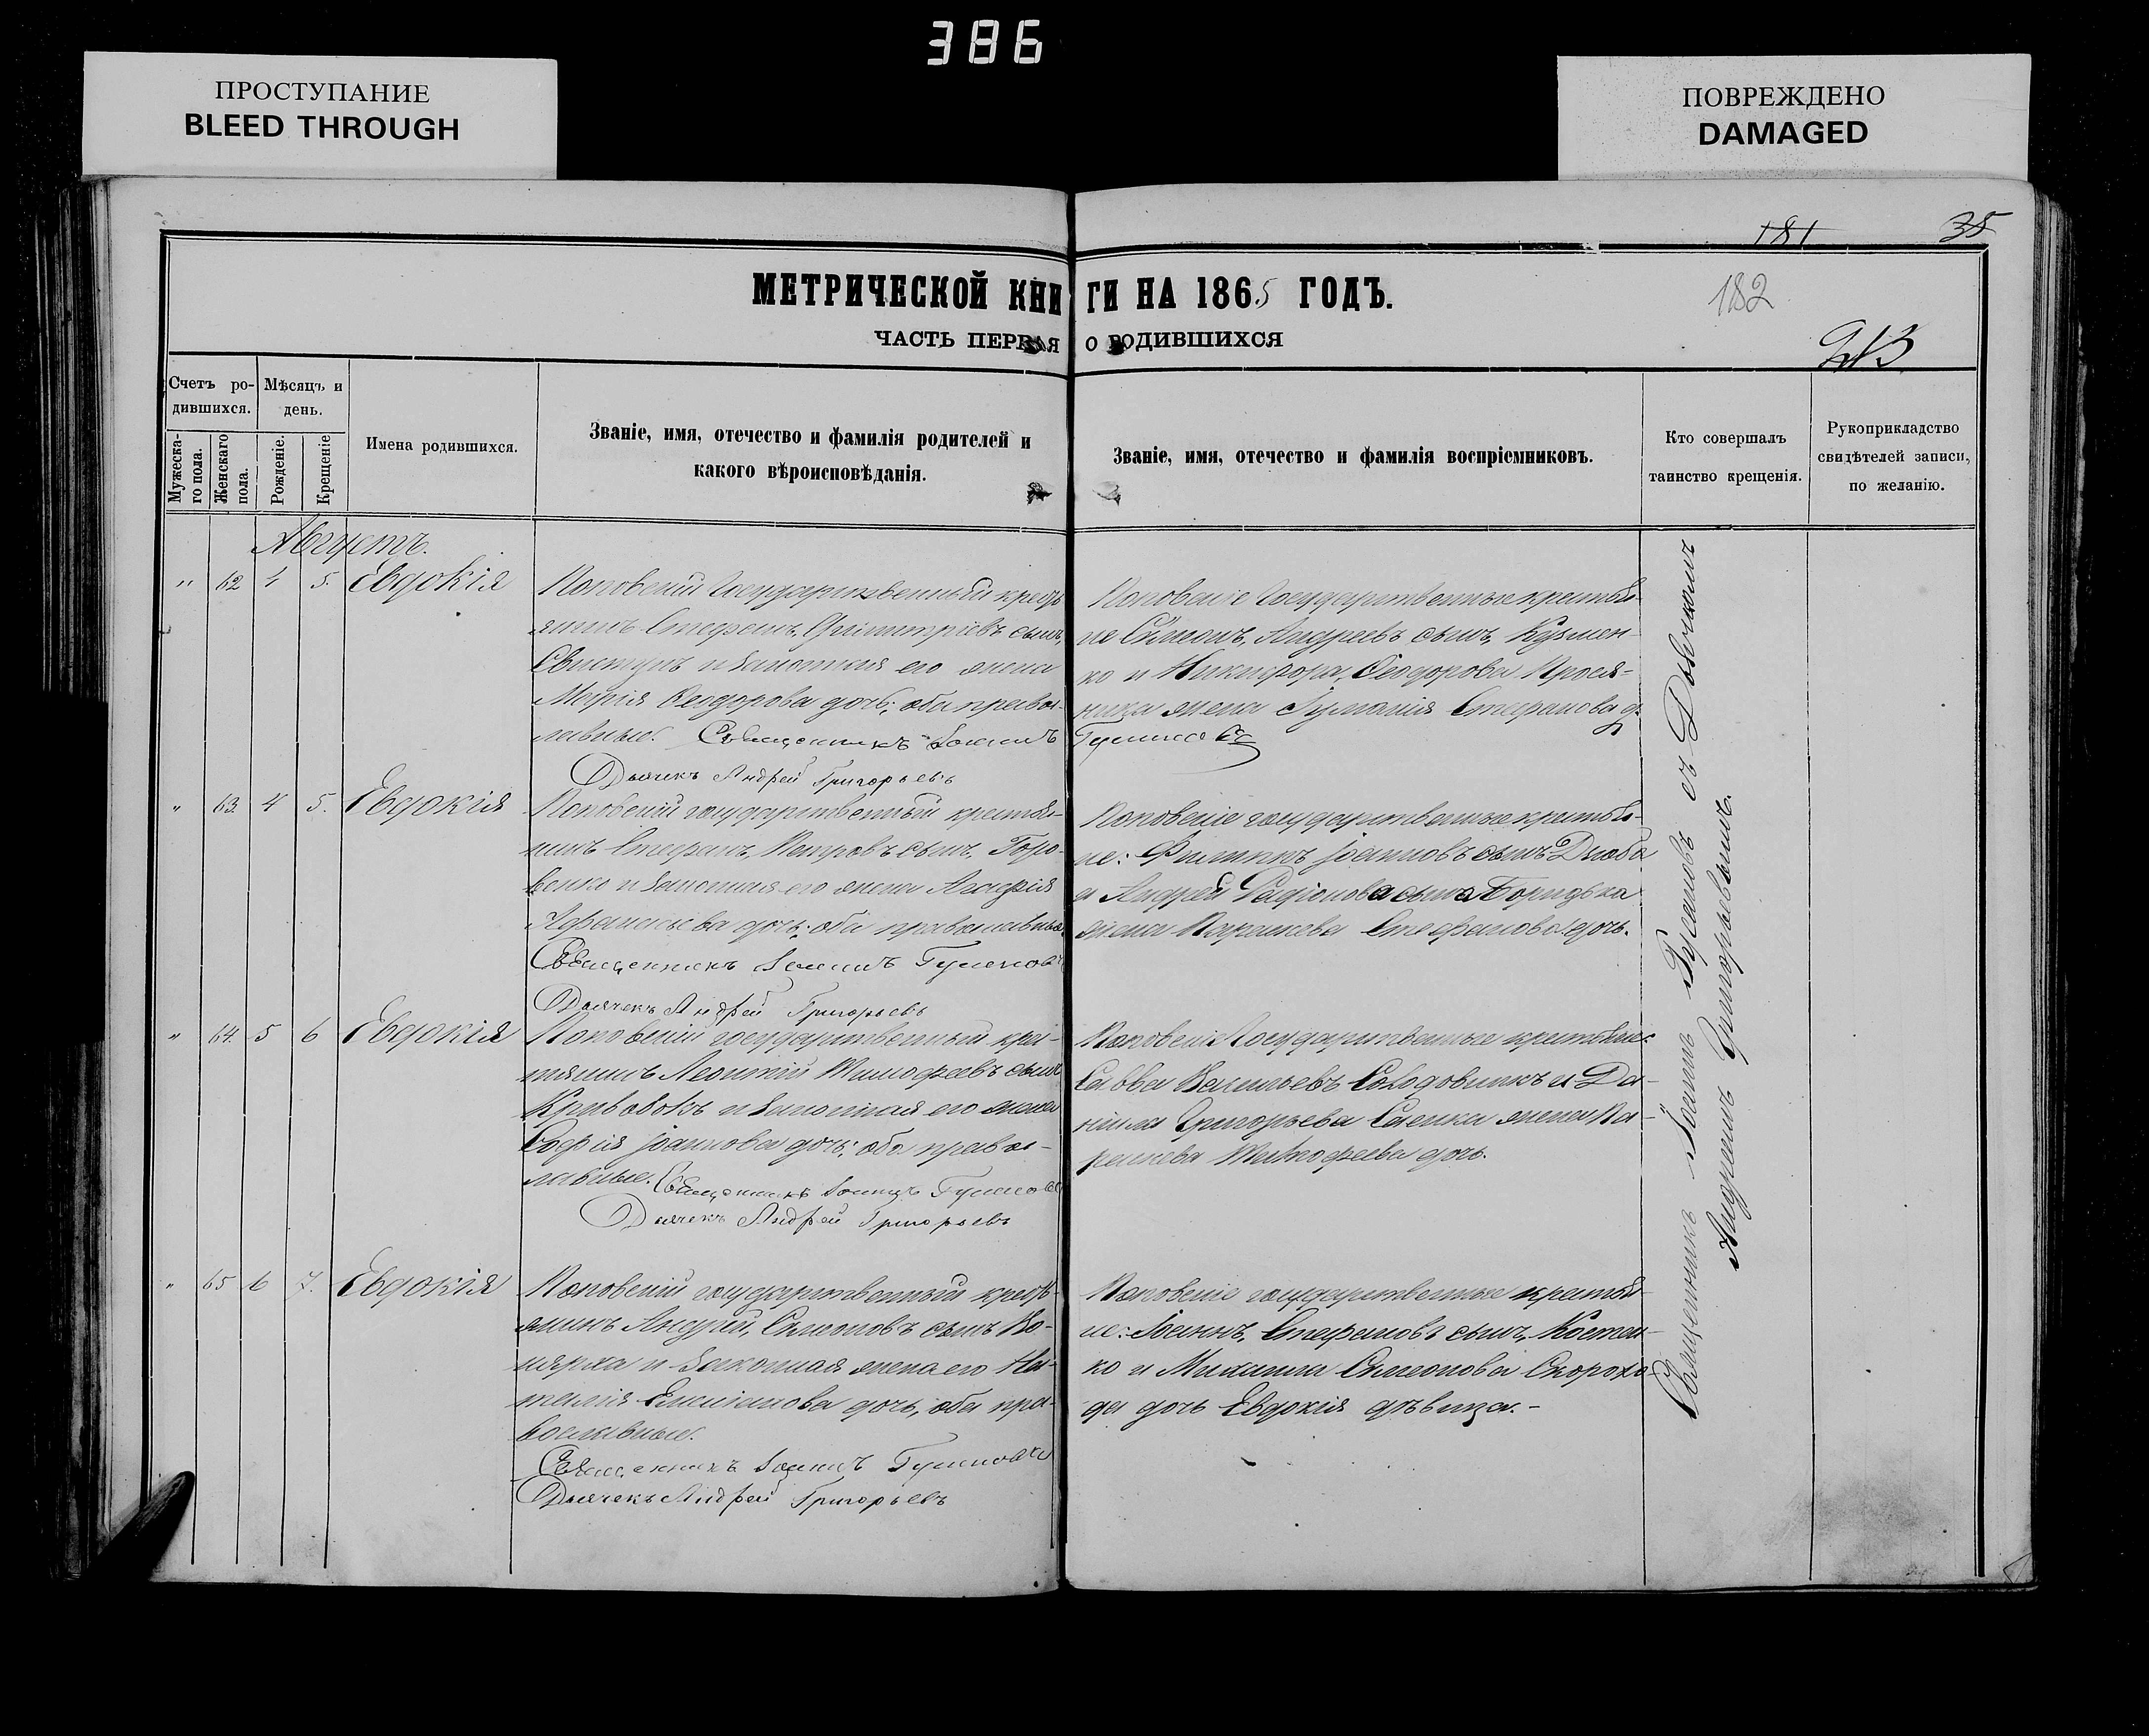 386
ПРОСТУПАНИЕ
BLEED THROUGH
ПОВРЕЖДЕНО
DAMAGED
181
35
МЕТРИЧЕСКОЙ КНИГИ НА 1865 ГОДЪ.
182
ЧАСТЬ ПЕРВАЯ О РОДИВШИХСЯ
213
Счетъ ро-
дившихся.
Мужеска-
го пола.
Женскаго
пола.
Мѣсяцъ и
день.
Рожденіе.
Крещеніе
Имена родившихся.
Званіе, имя, отечество и фамилія родителей и
какого вѣроисповѣданія.
Званіе, имя, отечество и фамилія воспріемниковъ.
Кто совершалъ
таинство крещенія.
Рукоприкладство
свидѣтелей записи,
по желанію.
Августъ.
" 62 1 5. Евдокія
Поповскій Государственный кресть
янинъ Стефанъ, Димитріевъ сынъ,
Свистунъ и законная его жена
Марія Ѳеодорова дочь; оба правос-
лавные. Священникъ Іоаннъ
Дьячекъ Андрей Григорьевъ
Поповскіе Государственные крестья-
не Симеонъ, Андреевъ сынъ, Кузмен-
ко и Никифора, Ѳеодорова Прося-
ника жена Стефанова д.
" 63. 4 5. Евдокія
Поповскій государственный крестья-
нинъ Стефанъ, Петровъ сынъ,
и законная его жена Агафія
дочь; оба православные.
Священникъ Іоаннъ
Дьячекъ Андрей Григорьевъ
Поповскіе государственные крестья-
не: Филиппъ Іоанновъ сынъ Дзюба
и Андрея Радіонова сына
жена Параскева Стефанова дочь.
" 64. 5 6 Евдокія
Поповскій государственный крес-
тянинъ Леонтій Тимофеевъ сынъ
и законная его жена
Софія Іоаннова дочь; оба правос-
лавные. Священникъ Іоаннъ
Дьячекъ Андрей Григорьевъ
Поповскіе Государственные крестьяне:
Савва Васильевъ Солодовникъ и Да-
ніила Григорьева жена Па-
раскева Тимофеева дочь.
" 65 6 7. Евдокія
Поповскій государственный кресть-
янинъ Андрей, Симеоновъ сынъ
и законная жена его На-
талія Емеліанова дочь, оба пра-
вославные.
Священникъ Іоаннъ
Дьячекъ Андрей Григорьевъ
Поповскіе государственные крестья-
не: Іоаннъ, Стефановъ сынъ, Костен-
ко и Михаила Симеонова Скорохо-
да дочь Евдокія дѣвица.-
Священникъ Іоаннъ съ Дьячкомъ
Андреемъ Григорьевымъ.